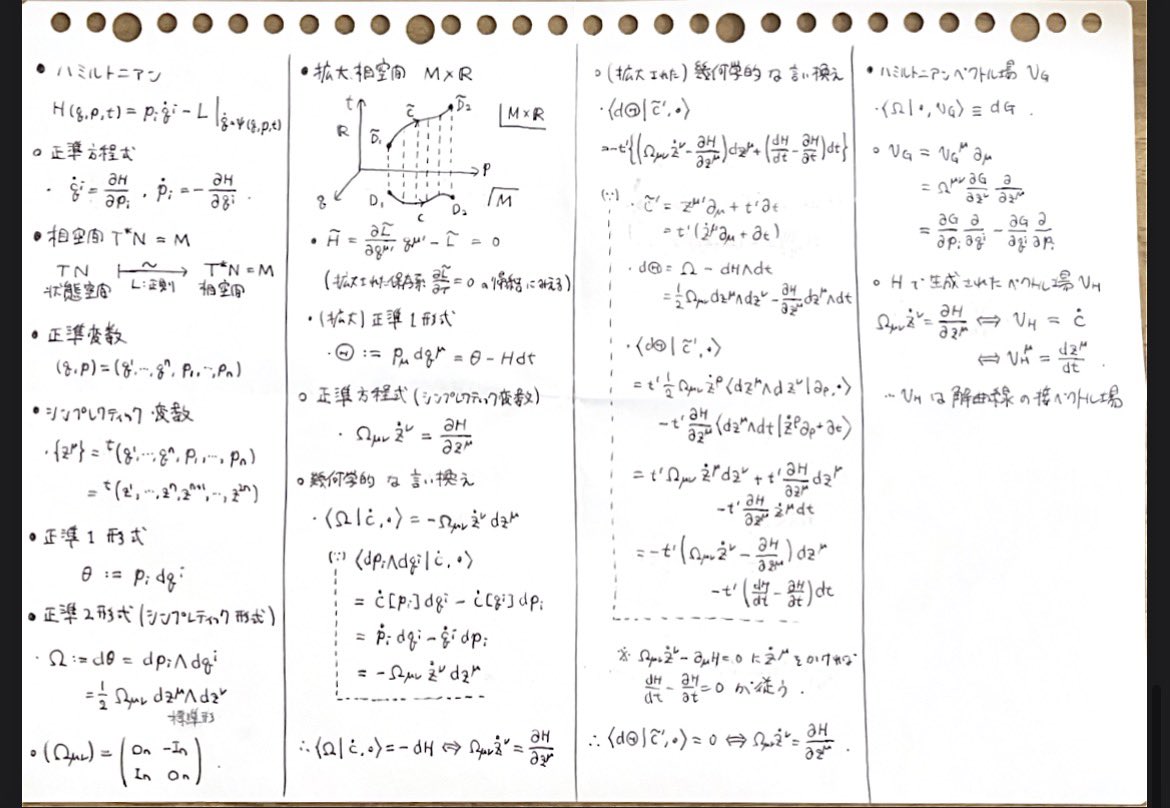 • ハミルトニアン
H(q,p,t) = p_i q̇^i − L |_{q̇=ψ(q,p,t)}
○ 正準方程式
・ q̇^i = ∂H/∂p_i , ṗ_i = −∂H/∂q^i .
• 相空間 T*N = M
TN ⟼(~) T*N = M
状態空間 L:正則 相空間
• 正準変数
(q,p) = (q^1,…,q^n, p_1,…,p_n)
• シンプレクティック変数
・{z^μ} = ^t(q^1,…,q^n, p_1,…,p_n)
= ^t(z^1,…,z^n, z^{n+1},…,z^{2n})
• 正準1形式
θ := p_i dq^i
• 正準2形式 (シンプレティック形式)
・ Ω := dθ = dp_i ∧ dq^i
= 1/2 Ω_{μν} dz^μ ∧ dz^ν
標準形
○ (Ω_{μν}) = ( On −In
In On ) .
• 拡大相空間 M×R
t R D̃_1 c̃ D̃_2 M×R
q p D_1 c D_2 M
• H̃ = ∂L̃/∂q^{μ'} q^{μ'} − L̃ = 0
(拡大された保存系 ∂L̃/∂τ = 0 の帰結にみえる)
・(拡大) 正準1形式
・Θ := p_μ dq^μ = θ − Hdt
○ 正準方程式 (シンプレクティック変数)
・ Ω_{μν} ż^ν = ∂H/∂z^μ
○ 幾何学的な言い換え
・⟨Ω|ċ,•⟩ = −Ω_{μν} ż^ν dz^μ
(∵) ⟨dp_i∧dq^i | ċ,•⟩
= ċ[p_i] dq^i − ċ[q^i] dp_i
= ṗ_i dq^i − q̇^i dp_i
= −Ω_{μν} ż^ν dz^μ
∴ ⟨Ω|ċ,•⟩ = −dH ⇔ Ω_{μν} ż^ν = ∂H/∂z^μ
○ (拡大された) 幾何学的な言い換え
・⟨dΘ|c̃',•⟩
= −t'{(Ω_{μν} ż^ν − ∂H/∂z^μ) dz^μ + (dH/dt − ∂H/∂t) dt}
(∵) ・ c̃' = z^{μ'} ∂_μ + t' ∂_t
= t'(ż^μ ∂_μ + ∂_t)
・ dΘ = Ω − dH∧dt
= 1/2 Ω_{μν} dz^μ∧dz^ν − ∂H/∂z^μ dz^μ∧dt
・⟨dΘ|c̃',•⟩
= t' 1/2 Ω_{μν} ż^ρ ⟨dz^μ∧dz^ν|∂_ρ,•⟩
−t' ∂H/∂z^μ ⟨dz^μ∧dt|ż^ρ∂_ρ+∂_t⟩
= t' Ω_{μν} ż^μ dz^ν + t' ∂H/∂z^μ dz^μ
−t' ∂H/∂z^μ ż^μ dt
= −t' (Ω_{μν} ż^ν − ∂H/∂z^μ) dz^μ
−t' (dH/dt − ∂H/∂t) dt
※ Ω_{μν} ż^ν − ∂_μH = 0 に ż^μ をかければ
dH/dt − ∂H/∂t = 0 が従う.
∴ ⟨dΘ|c̃',•⟩ = 0 ⇔ Ω_{μν} ż^ν = ∂H/∂z^μ .
• ハミルトニアンベクトル場 V_G
・⟨Ω|•,V_G⟩ ≡ dG .
○ V_G = V_G^μ ∂_μ
= Ω^{μν} ∂G/∂z^ν ∂/∂z^μ
= ∂G/∂p_i ∂/∂q^i − ∂G/∂q^i ∂/∂p_i
○ Hで生成されたベクトル場 V_H
Ω_{μν} ż^ν = ∂H/∂z^μ ⇔ V_H = ċ
⇔ V_H^μ = dz^μ/dt .
… V_H は解曲線の接ベクトル場